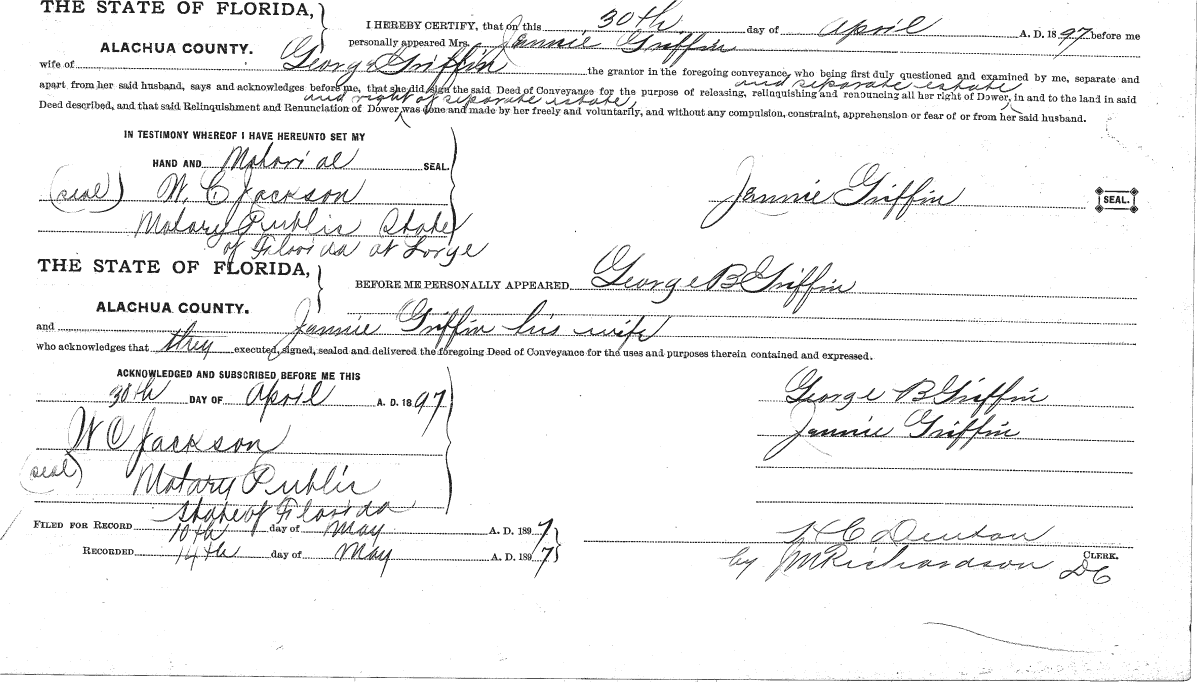 THE STATE OF FLORIDA,
ALACHUA COUNTY.
I HEREBY CERTIFY, that on this 30th day of April A. D. 1897 before me
personally appeared Mrs. Jannie Griffin
wife of George Griffin the grantor in the foregoing conveyance, who being first duly questioned and examined by me, separate and
and separate estate
apart from her said husband, says and acknowledges before me, that she did sign the said Deed of Conveyance for the purpose of releasing, relinquishing and renouncing all her right of Dower, in and to the land in said
and right of separate estate,
Deed described, and that said Relinquishment and Renunciation of Dower, was done and made by her freely and voluntarily, and without any compulsion, constraint, apprehension or fear of or from her said husband.
IN TESTIMONY WHEREOF I HAVE HEREUNTO SET MY
HAND AND Notarial SEAL.
(seal) W. C Jackson
Notary Public State
of Florida at Large
Jannie Griffin SEAL.
THE STATE OF FLORIDA,
ALACHUA COUNTY.
BEFORE ME PERSONALLY APPEARED George B Griffin
and Jannie Griffin his wife
who acknowledges that they executed, signed, sealed and delivered the foregoing Deed of Conveyance for the uses and purposes therein contained and expressed.
ACKNOWLEDGED AND SUBSCRIBED BEFORE ME THIS
30th DAY OF April A. D. 1897
W C Jackson
(seal) Notary Public
State of Florida
George B Griffin
Jannie Griffin
FILED FOR RECORD 10th day of May A. D. 1897
RECORDED 14th day of May A. D. 1897
H C Denton
CLERK.
by J M Richardson DC